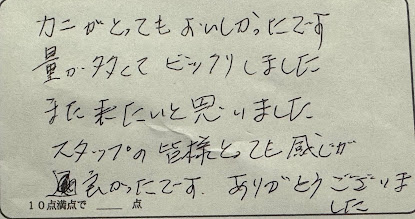 カニがとってもおいしかったです
量が多くてビックリしました
また来たいと思いました
スタッフの皆様とっても感じが
良かったです. ありがとうございま
した
10点満点で ____ 点